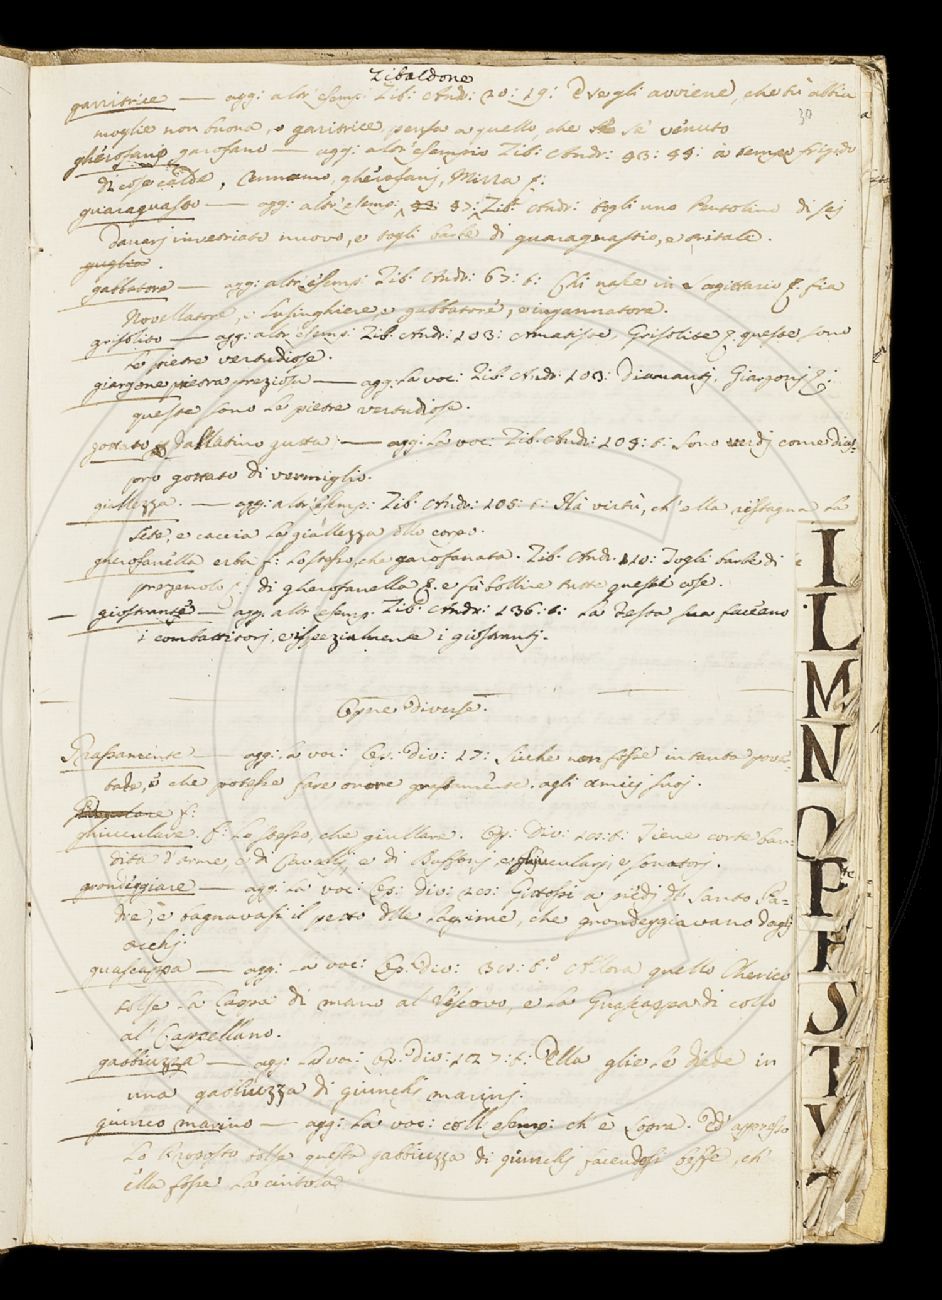 Zibaldone
30
garritrice — agg: altr' esemp: Zib: Andr: 20: 19: E s'egli avviene, che tu abbia
moglie non buona, o garitrice, pensa a quello, che se' venuto
gherofano, garofano — agg: altr' esempio Zib: Andr: 93: a tempo frigido
di cose calde, Cennamo, gherofani, Mirra
guaraguasto — agg: altr' esemp: 97: Zib: Andr: togli uno Pentolino di sei
danari invetriato nuovo, e togli barbe di guaraguastio, e pistale.
guglia.
gabbatore — agg: altr' esemp: Zib: Andr: 67: t: Chi nasce in sagittario fia
Novellatore, e lusinghiere, e gabbatore, e ingannatore.
grisolito — agg: altr' esemp: Zib: Andr: 103: Amatista, Grisolite queste sono
le pietre vertudiose.
giargone pietra preziosa — agg: la voc: Zib: Andr: 103: Diamanti, Giargoni
queste sono le pietre vertudiose.
gottato, dal latino gutta: — agg: la voc: Zib: Andr: 105: t: sono verdi come dias-
pro gottato di vermiglio.
giallezza. — agg: altr' esemp: Zib: Andr: 105: t: Ha virtù, ch' ella ristagna la
sete, e caccia la giallezza dello corpo.
gherofanella erba f: lo stesso, che garofanata. Zib: Andr: 110: Togli barbe di
prezemolo di gherofanella e fà bollire tutte queste cose.
— giostrante — agg: altr' esemp: Zib: Andr: 136: t: La Testa sua faceano
i combattitori, e ispezialmente i giostranti.
Opre Diverse.
Grassamente — agg: la voc: Op: Div: 17: sicchè non fosse in tanta pover-
tade, che potesse fare onore grassamente agli amici suoi.
ghiuculare. f: lo stesso, che giullare. Op: Div: t: Tiene corte ban-
dita d'arme, e di Cavalli, e di Buffoni, e ghiuculari, e sonatori.
grondeggiare — agg: la voc: Op: Div: Gittossi a piedi del Santo Pa-
dre, e bagnavasi il petto delle lagrime, che grondeggiavano dagli
occhi.
guascappa — agg: la voc: Op: Div: t: Allora quello Cherico
tolse la Cappa di mano al Vescovo, e la Guascappa di collo
al Cappellano.
gabbiuzza — agg: la voc: Op: Div: 127: t: Ella glie le diede in
una gabbiuzza di giunchi marini.
giunco marino — agg: la voc: coll' esemp: ch' è sopra. Ed appresso
Lo Proposto tolse questa gabbiuzza di giunchi facendosi beffe, ch'
ella fosse la cintola
I
L
M
N
O
P
R
S
T
V
Z